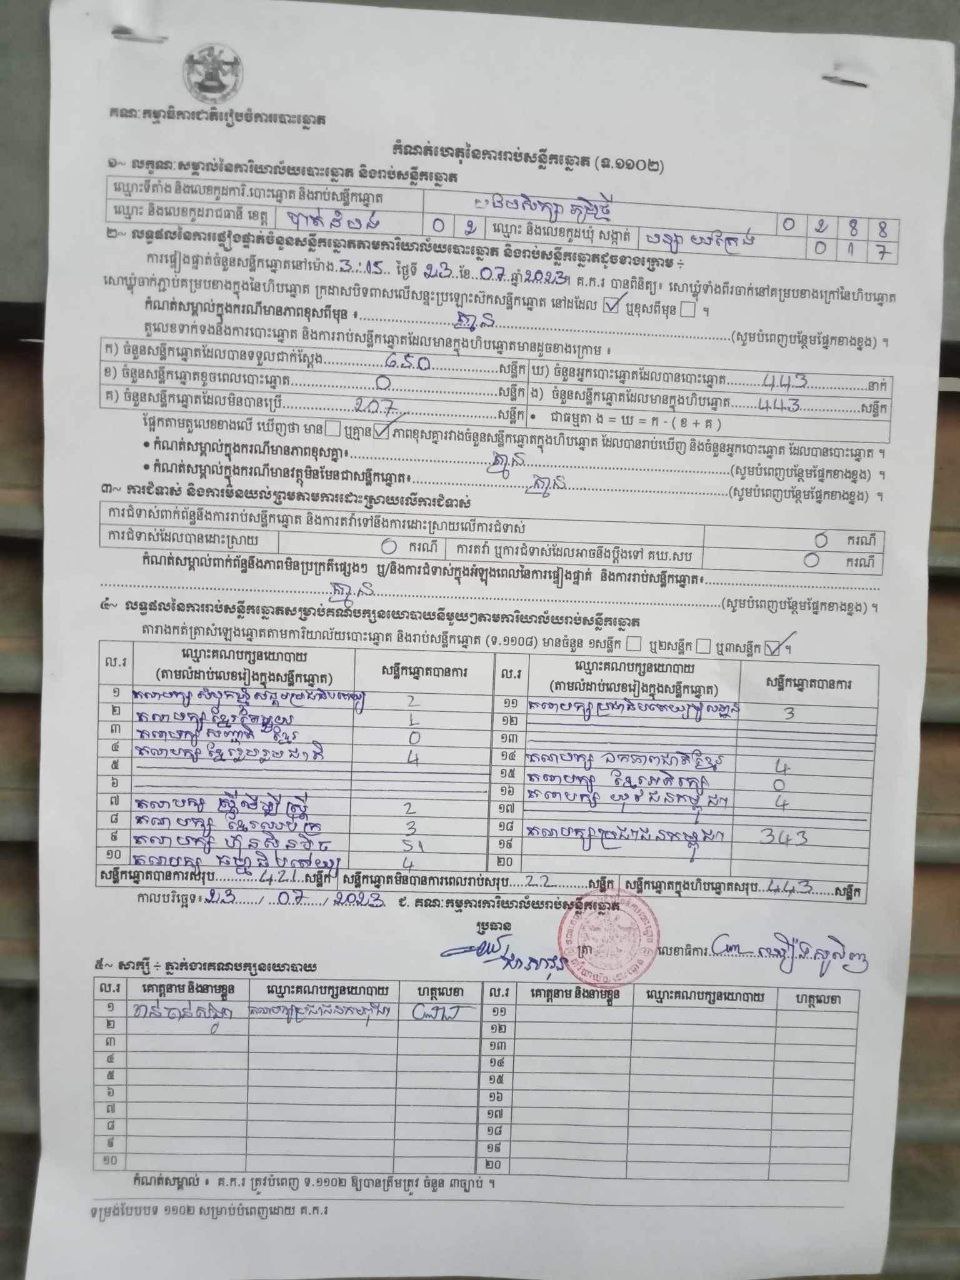 គណៈកម្មាធិការជាតិរៀបចំការបោះឆ្នោត
កំណត់ហេតុនៃការរាប់សន្លឹកឆ្នោត (ទ.១១០២)
១~ លក្ខណៈសម្គាល់នៃការិយាល័យបោះឆ្នោត និងរាប់សន្លឹកឆ្នោត
ឈ្មោះទីតាំង និងលេខកូដការិ.បោះឆ្នោត និងរាប់សន្លឹកឆ្នោត 0 2 8 8
ឈ្មោះ និងលេខកូដរាជធានី ខេត្ត បាត់ដំបង 0 2 ឈ្មោះ និងលេខកូដឃុំ សង្កាត់ 0 1 7
២~ លទ្ធផលនៃការផ្ទៀងផ្ទាត់ចំនួនសន្លឹកឆ្នោតតាមការិយាល័យបោះឆ្នោត និងរាប់សន្លឹកឆ្នោតដូចខាងក្រោម ÷
ការផ្ទៀងផ្ទាត់ចំនួនសន្លឹកឆ្នោតនៅម៉ោង 3:15 ថ្ងៃទី 23 ខែ 07 ឆ្នាំ 2023។ គ.ក.រ បានពិនិត្យ៖ សោឃ្លុំទាំងពីរចាក់នៅគម្របខាងក្រៅនៃហិបឆ្នោត
សោឃ្លុំចាក់ភ្ជាប់គម្របខាងក្នុងនៃហិបឆ្នោត ក្រដាសបិទពាសលើសន្ទះប្រឡោះស៊កសន្លឹកឆ្នោត នៅដដែល ☑ ឬខុសពីមុន ☐ ។
កំណត់សម្គាល់ក្នុងករណីមានភាពខុសពីមុន ៖ គ្មាន (សូមបំពេញបន្ថែមផ្នែកខាងខ្នង) ។
តួលេខទាក់ទងនឹងការបោះឆ្នោត និងការរាប់សន្លឹកឆ្នោតដែលមានក្នុងហិបឆ្នោតមានដូចខាងក្រោម ៖
ក) ចំនួនសន្លឹកឆ្នោតដែលបានទទួលជាក់ស្តែង 650 សន្លឹក ឃ) ចំនួនអ្នកបោះឆ្នោតដែលបានបោះឆ្នោត 443 នាក់
ខ) ចំនួនសន្លឹកឆ្នោតខូចពេលបោះឆ្នោត 0 សន្លឹក ង) ចំនួនសន្លឹកឆ្នោតដែលមានក្នុងហិបឆ្នោត 443 សន្លឹក
គ) ចំនួនសន្លឹកឆ្នោតដែលមិនបានប្រើ 207 សន្លឹក • ជាធម្មតា ង = ឃ = ក - ( ខ + គ )
ផ្អែកតាមតួលេខខាងលើ ឃើញថា មាន ☐ ឬគ្មាន ☑ ភាពខុសគ្នារវាងចំនួនសន្លឹកឆ្នោតក្នុងហិបឆ្នោត ដែលបានរាប់ឃើញ និងចំនួនអ្នកបោះឆ្នោត ដែលបានបោះឆ្នោត ។
• កំណត់សម្គាល់ក្នុងករណីមានភាពខុសគ្នា៖ គ្មាន (សូមបំពេញបន្ថែមផ្នែកខាងខ្នង) ។
• កំណត់សម្គាល់ក្នុងករណីមានវត្ថុមិនមែនជាសន្លឹកឆ្នោត៖ គ្មាន (សូមបំពេញបន្ថែមផ្នែកខាងខ្នង) ។
៣~ ការជំទាស់ និងការមិនយល់ព្រមតាមការដោះស្រាយលើការជំទាស់
ការជំទាស់ពាក់ព័ន្ធនឹងការរាប់សន្លឹកឆ្នោត និងការតវ៉ាទៅនឹងការដោះស្រាយលើការជំទាស់ 0 ករណី
ការជំទាស់ដែលបានដោះស្រាយ 0 ករណី ការតវ៉ា ឬការជំទាស់ដែលអាចនឹងប្តឹងទៅ គឃ.សប 0 ករណី
កំណត់សម្គាល់ពាក់ព័ន្ធនឹងភាពមិនប្រក្រតីផ្សេងៗ ឬ/និងការជំទាស់ក្នុងអំឡុងពេលនៃការផ្ទៀងផ្ទាត់ និងការរាប់សន្លឹកឆ្នោត៖
គ្មាន (សូមបំពេញបន្ថែមផ្នែកខាងខ្នង) ។
៤~ លទ្ធផលនៃការរាប់សន្លឹកឆ្នោតសម្រាប់គណបក្សនយោបាយនីមួយៗតាមការិយាល័យរាប់សន្លឹកឆ្នោត
តារាងកត់ត្រាសំឡេងឆ្នោតតាមការិយាល័យបោះឆ្នោត និងរាប់សន្លឹកឆ្នោត (ទ.១១០៨) មានចំនួន ១សន្លឹក ☐ ឬ២សន្លឹក ☐ ឬ៣សន្លឹក ☑ ។
ល.រ ឈ្មោះគណបក្សនយោបាយ (តាមលំដាប់លេខរៀងក្នុងសន្លឹកឆ្នោត) សន្លឹកឆ្នោតបានការ ល.រ ឈ្មោះគណបក្សនយោបាយ (តាមលំដាប់លេខរៀងក្នុងសន្លឹកឆ្នោត) សន្លឹកឆ្នោតបានការ
១ គណបក្ស សំបុកឃ្មុំសង្គមប្រជាធិបតេយ្យ 2 ១១ គណបក្សប្រជាធិបតេយ្យមូលដ្ឋាន 3
២ គណបក្ស ខ្មែរតែមួយ 1 ១២
៣ គណបក្ស សញ្ជាតិខ្មែរ 0 ១៣
៤ គណបក្ស ខ្មែររួបរួមជាតិ 4 ១៤ គណបក្ស ឯកភាពជាតិខ្មែរ 4
៥ ១៥ គណបក្ស ខ្មែរអភិរក្ស 0
៦ ១៦ គណបក្ស យុវជនកម្ពុជា 4
៧ គណបក្ស ស្ត្រីដើម្បីស្ត្រី 2 ១៧
៨ គណបក្ស ខ្មែរឈប់ក្រ 3 ១៨ គណបក្សប្រជាជនកម្ពុជា 343
៩ គណបក្ស ហ៊្វុនស៊ិនប៉ិច 51 ១៩
១០ គណបក្ស ធម្មាធិបតេយ្យ 4 ២០
សន្លឹកឆ្នោតបានការសរុប 421 សន្លឹក សន្លឹកឆ្នោតមិនបានការពេលរាប់សរុប 22 សន្លឹក សន្លឹកឆ្នោតក្នុងហិបឆ្នោតសរុប 443 សន្លឹក
កាលបរិច្ឆេទ៖ 23 / 07 / 2023 ជ. គណៈកម្មការការិយាល័យរាប់សន្លឹកឆ្នោត
ប្រធាន
ត្រា លេខាធិការ
៥~ សាក្សី ÷ ភ្នាក់ងារគណបក្សនយោបាយ
ល.រ គោត្តនាម និងនាមខ្លួន ឈ្មោះគណបក្សនយោបាយ ហត្ថលេខា ល.រ គោត្តនាម និងនាមខ្លួន ឈ្មោះគណបក្សនយោបាយ ហត្ថលេខា
១ គណបក្សប្រជាជនកម្ពុជា ១១
២ ១២
៣ ១៣
៤ ១៤
៥ ១៥
៦ ១៦
៧ ១៧
៨ ១៨
៩ ១៩
១០ ២០
កំណត់សម្គាល់ ៖ គ.ក.រ ត្រូវបំពេញ ទ.១១០២ ឱ្យបានត្រឹមត្រូវ ចំនួន ៣ច្បាប់ ។
ទម្រង់បែបបទ ១១០២ សម្រាប់បំពេញដោយ គ.ក.រ